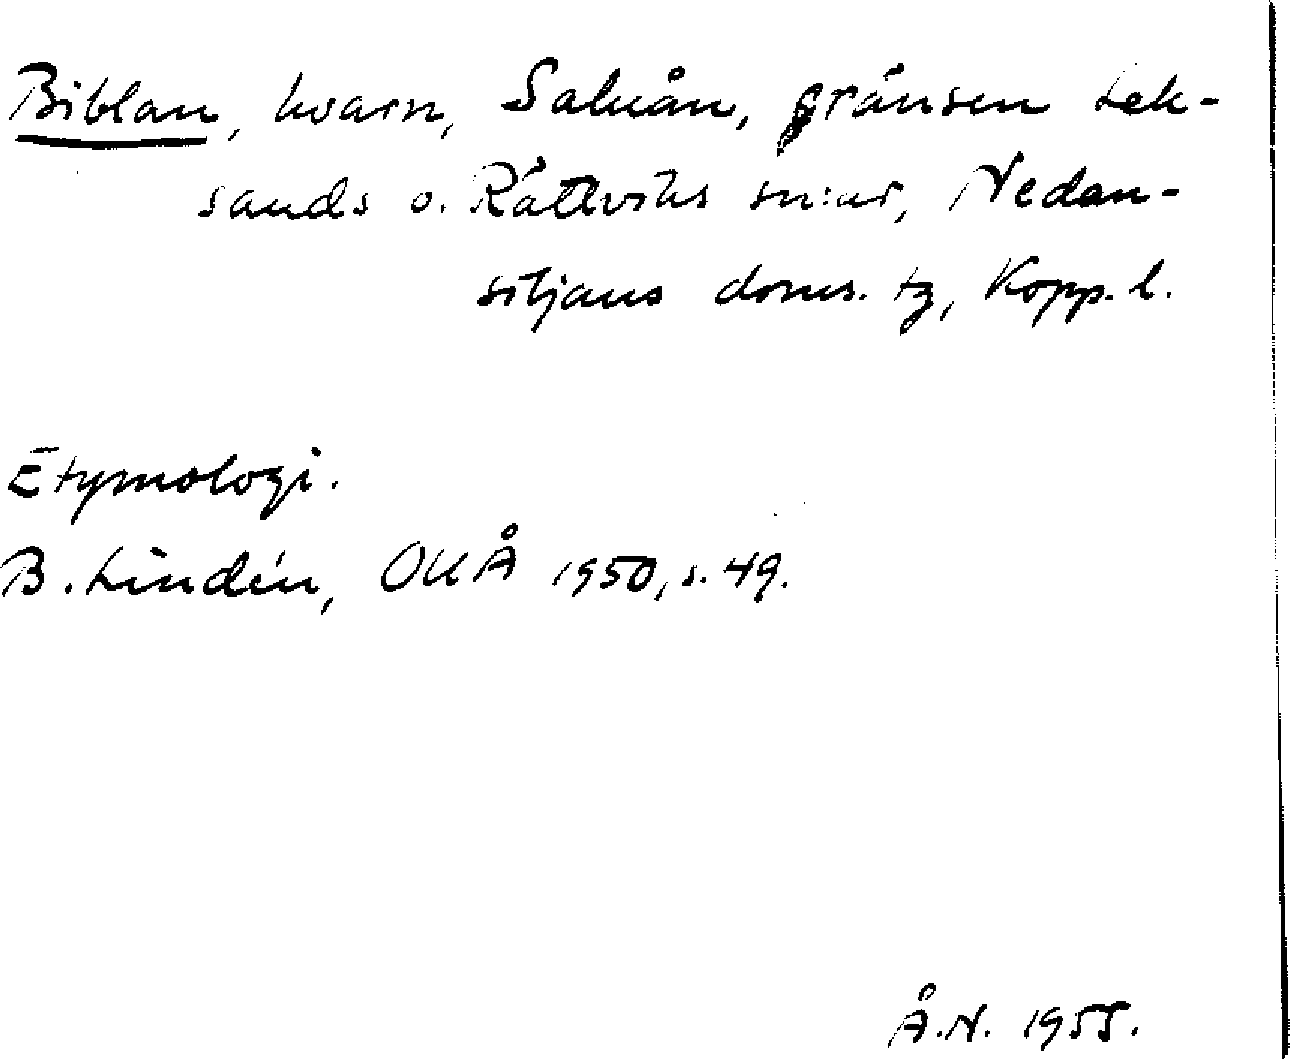 Biblan, kvarn, Saluån, gränsen Lek-
sands o. Rättviks sn:ar, Nedan-
siljans doms. tg, Kopp. l.
Etymologi.
B. Lindén, OUÅ 1950, s. 49.
Å.N. 1955.